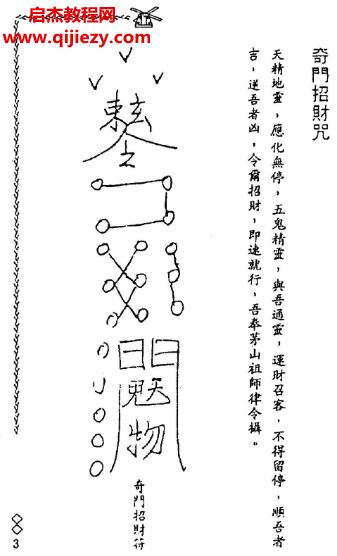 启杰教程网
www.qijiezy.com
奇門招財咒
天精地靈，應化無停，五鬼精靈，與吾通靈，運財召客，不得留停，順吾者
言，逆吾者凶，令爾招財，即速就行，吾奉茅山祖師律令攝。
物
奇門招財符
3